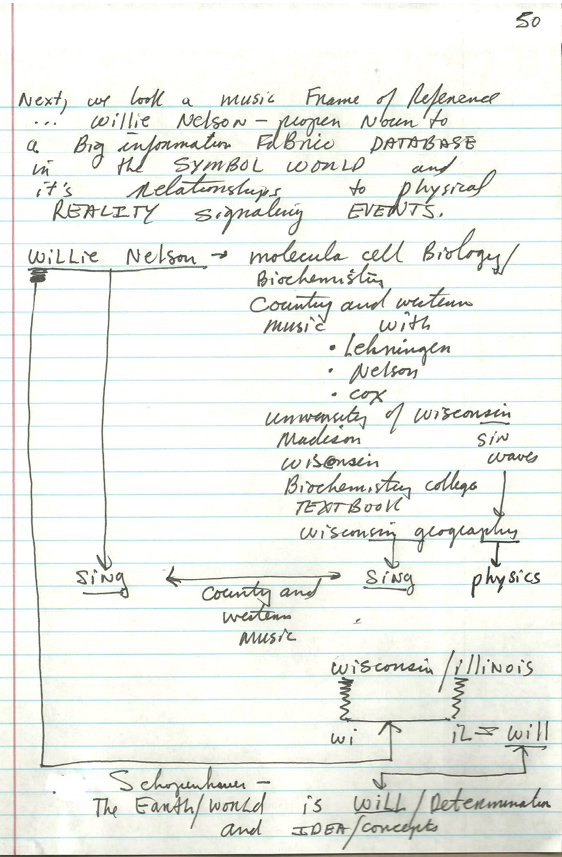 50
Next, we look a music Frame of Reference
... Willie Nelson - propen Noun to
a Big information FaBric DATABASE
in the SYMBOL WORLD and
it's Relationships to physical
REALITY Signaling EVENTS.
WiLLie Nelson → molecula cell Biology/
Biochemistry
Country and western
music with
• Lehningen
• Nelson
• cox
university of wisconsin
Madison sin
wisconsin waves
Biochemistry college
TEXTBOOK
wisconsin geography
Sing Sing physics
Country and
western
music
wisconsin/illiNois
wi iL = will
Schopenhauer -
The Earth/World is WiLL/Determination
and IDEA/concepts